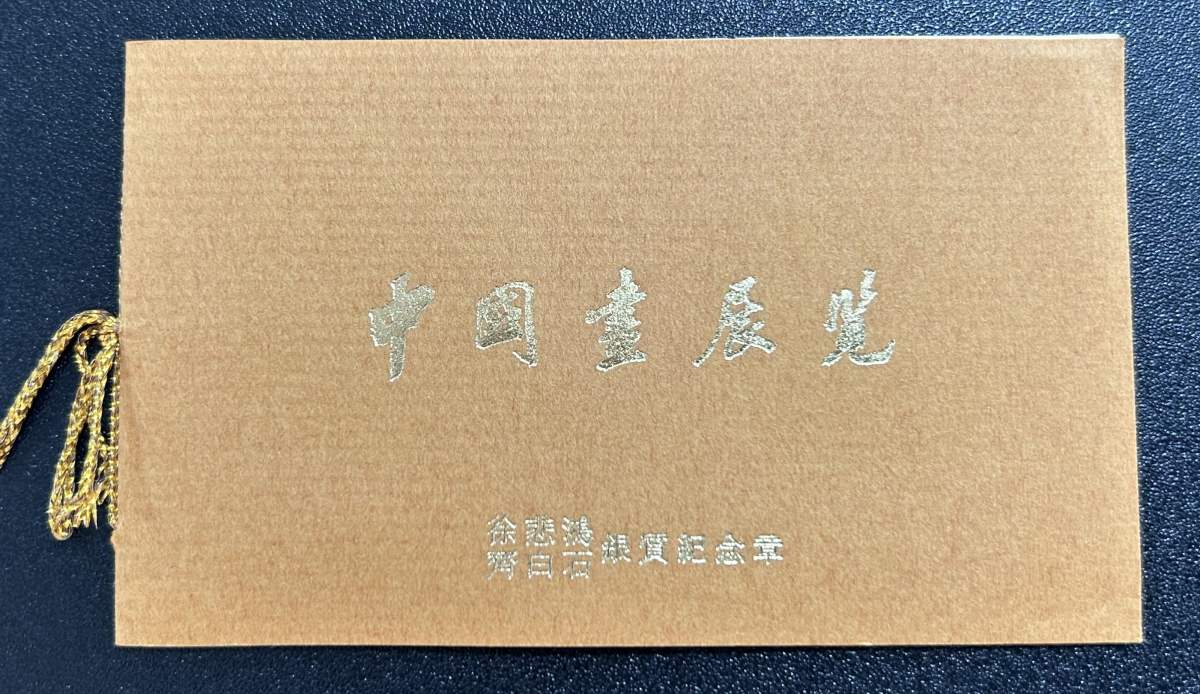 中国畫展览
徐悲鴻
齊白石 銀質紀念章